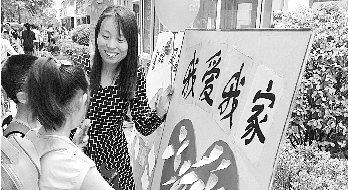 我爱我家